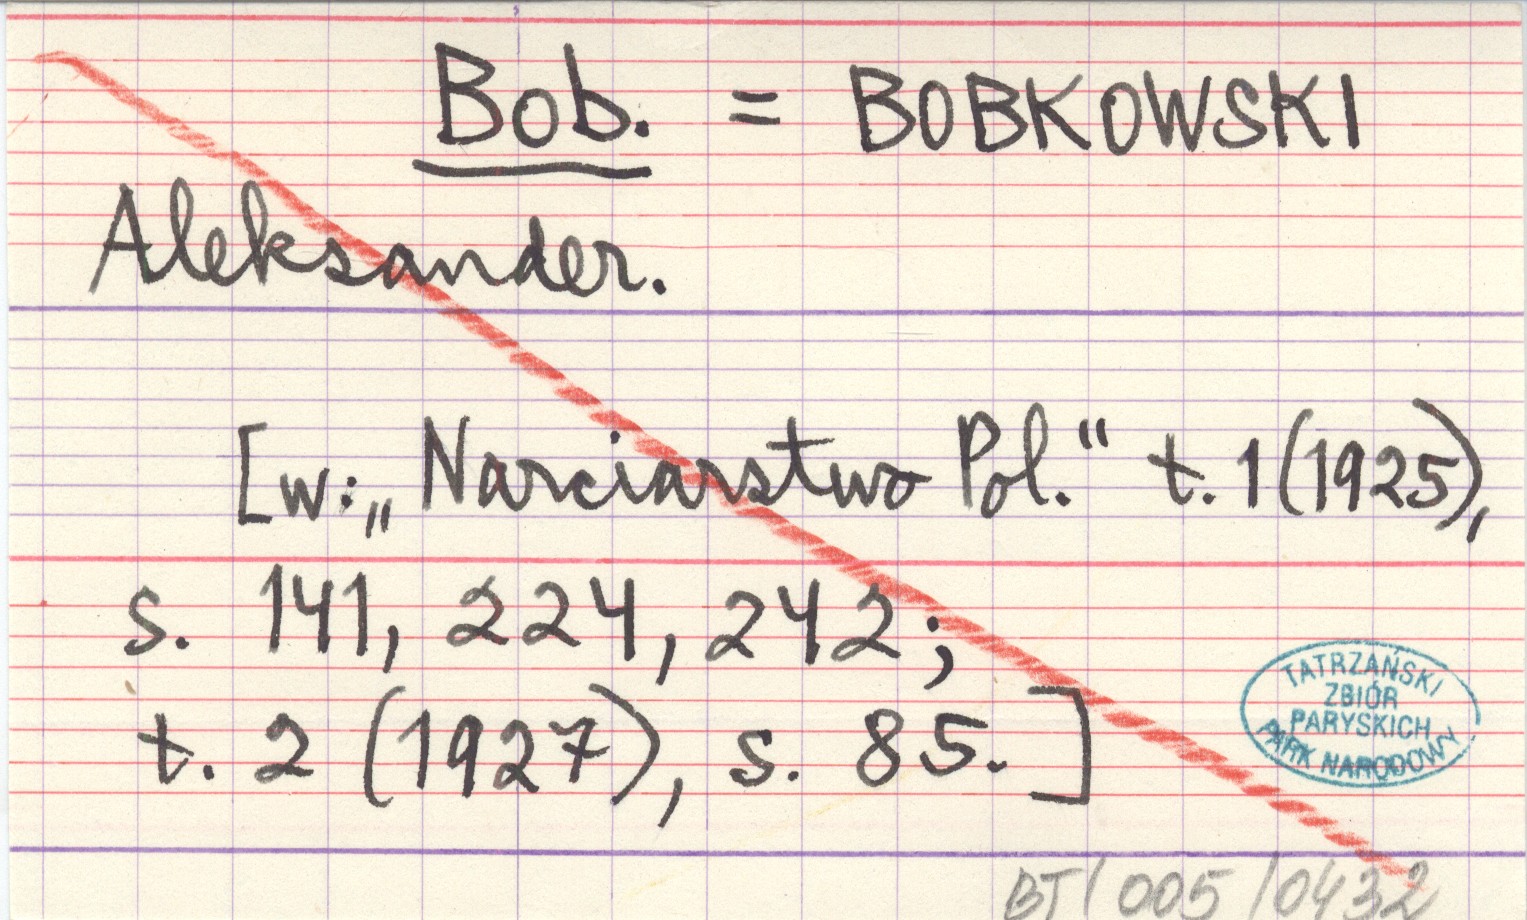 Bob. = BOBKOWSKI
Aleksander.
[w: „Narciarstwo Pol." t. 1 (1925),
s. 141, 224, 242;
t. 2 (1927), s. 85.]
TATRZAŃSKI
ZBIÓR
PARYSKICH
PARK NARODOWY
BT/005/0432